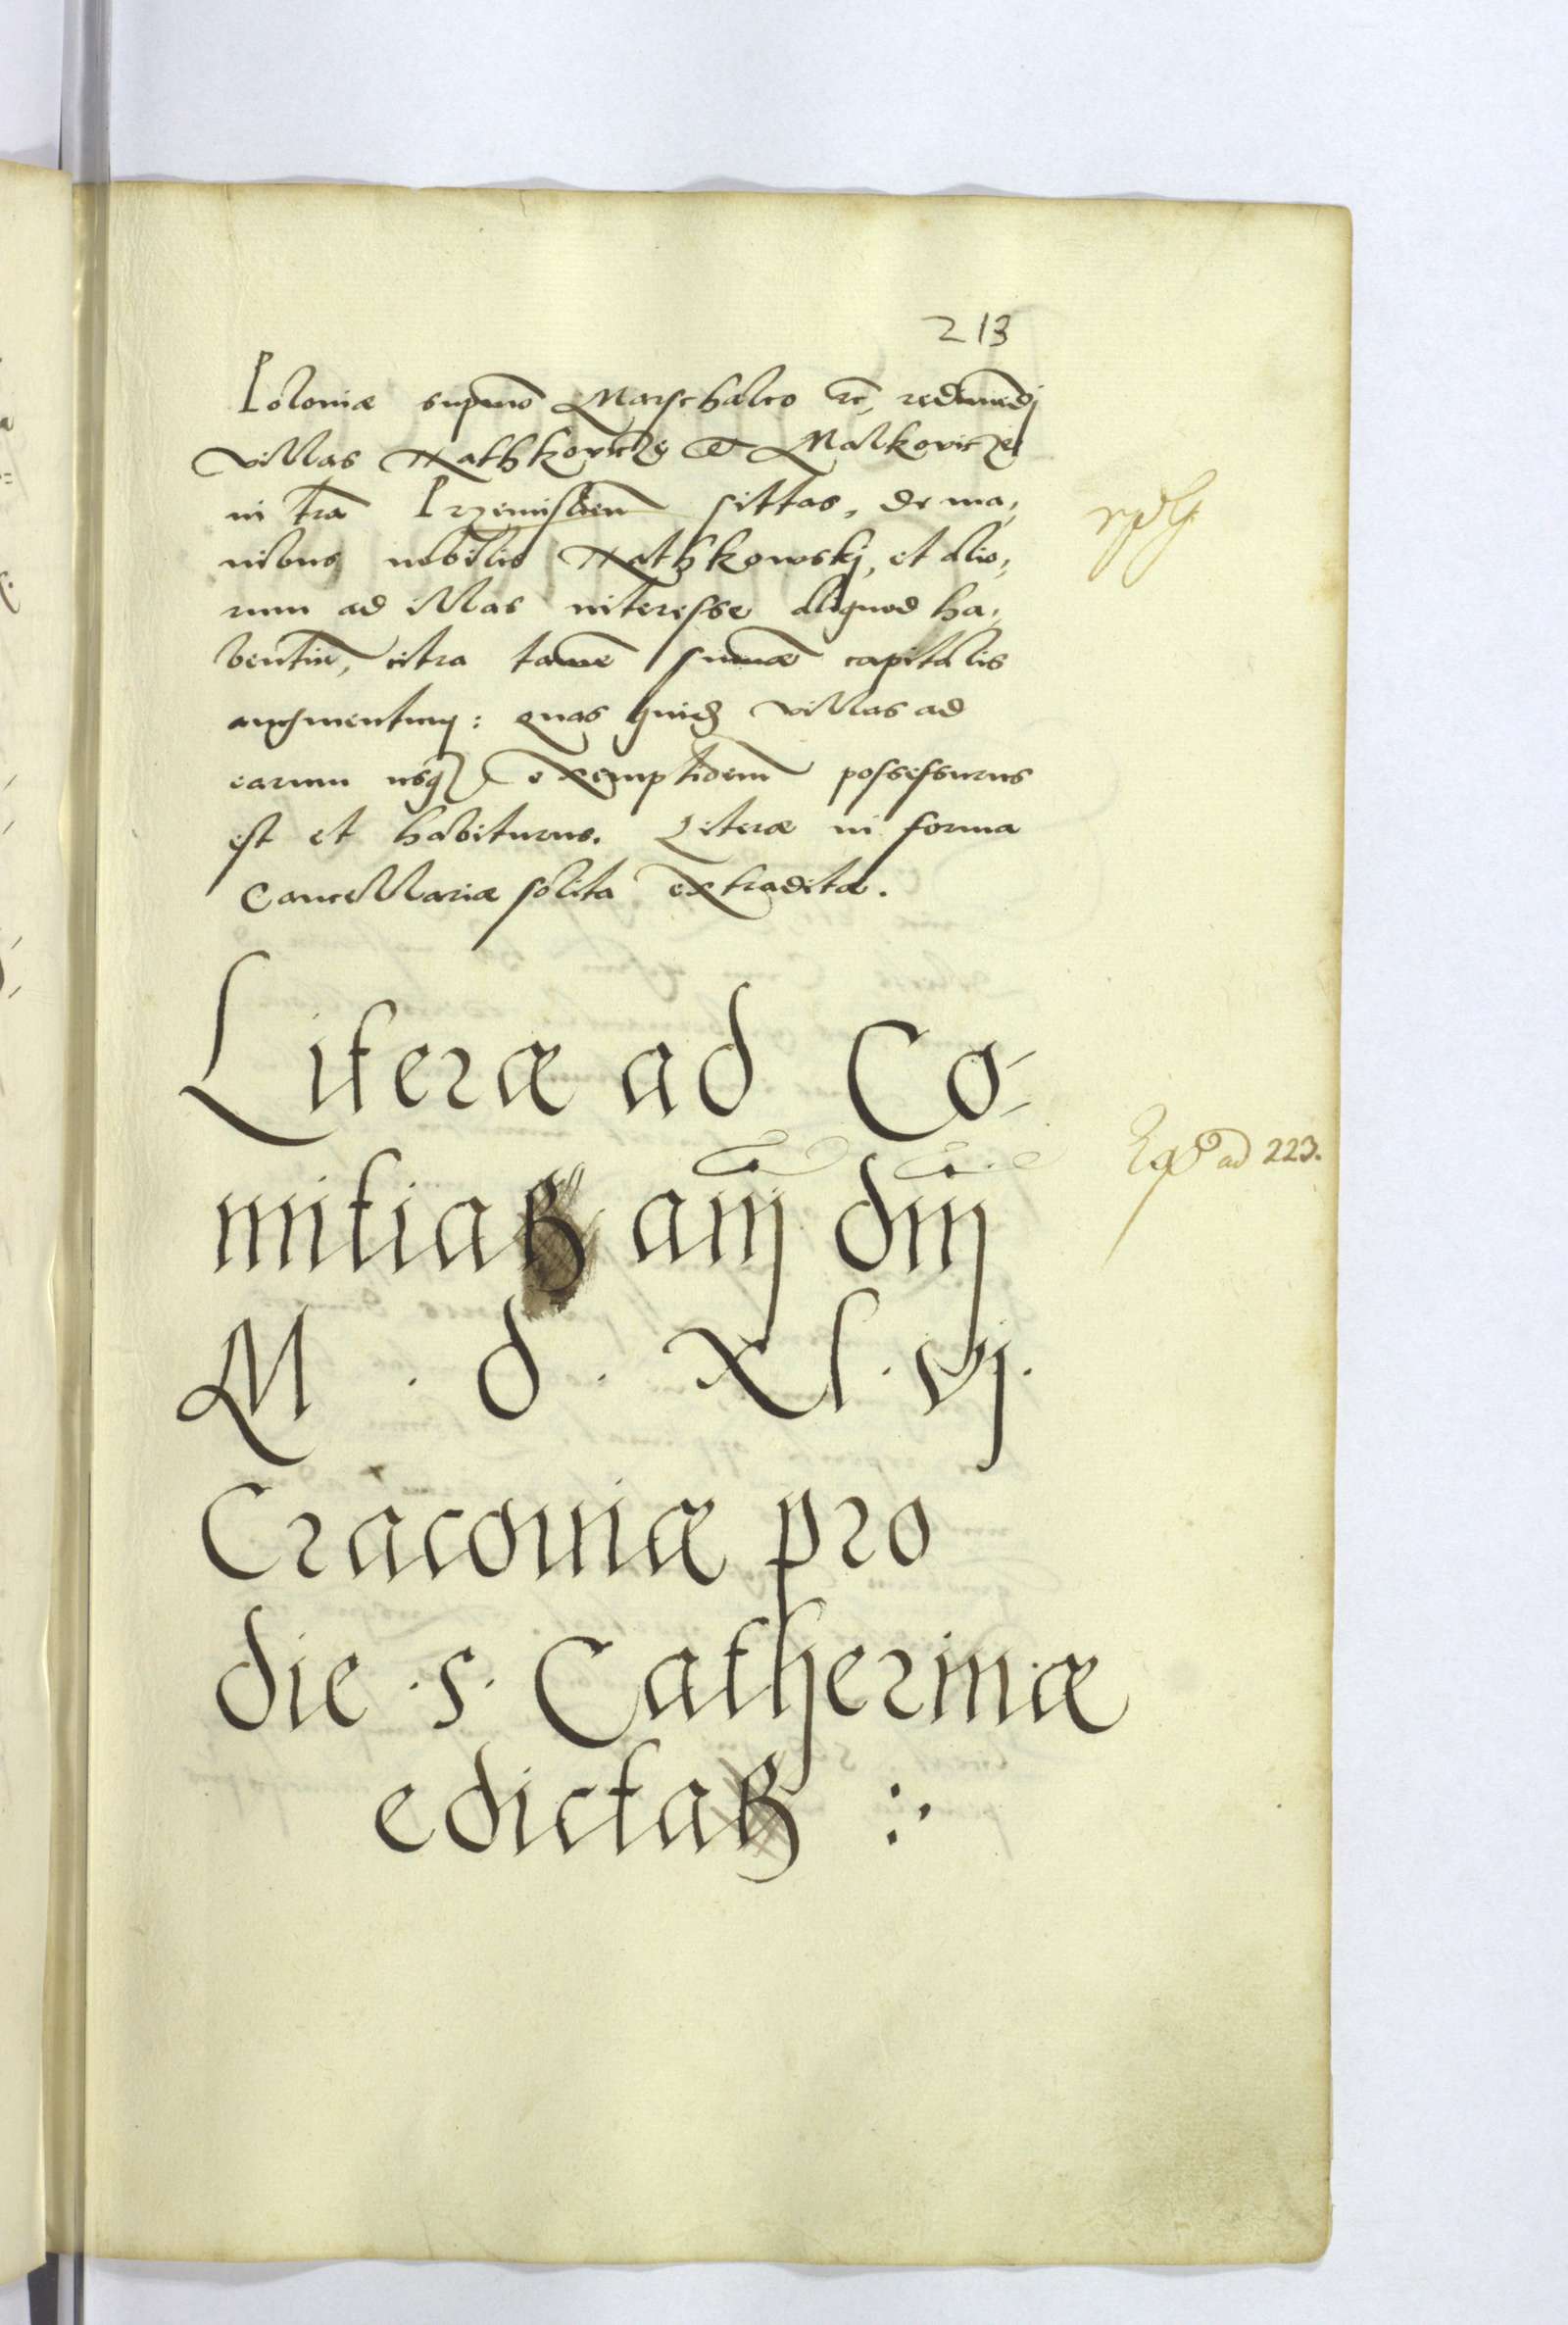 213
Poloniæ supmo Marschalco etc, redimedj
villas Rathkovicze et Malkovicze
in tra Przemislien sittas, de ma¬
nibus nobilis Rathkowskj, et alio¬
rum ad illas interesse aliquod ha¬
bentiu, citra tame summæ capitalis
augmentum: quas quidē villas ad
earum usq exemptionem possessurus
est et habiturus. Literæ in forma
Cancellariæ solita extraditæ.
Literæ ad Co-
mitia anj dnj
M . d . xl . vj.
Cracoviæ pro
die . s . Catherinæ
edicta :
ad 223.